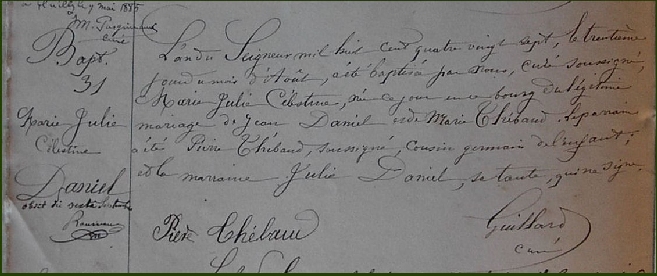 à Juilly le y mai 1885
Mr Pasquineau
curé
Bapt.
31
Marie Julie
Célestine
Daniel
L'an du Seigneur mil huit cent quatre vingt sept, le trentième
jour du mois d'Août, a été baptisée par nous, curé soussigné,
Marie Julie Célestine, née ce jour en ce bourg du légitime
mariage de Jean Daniel et de Marie Thébaud. Le parrain
a été Pierre Thébaud, soussigné, cousin germain de l'enfant;
et la marraine Julie Daniel, sa tante, qui ne signe.
Pierre Thébaud
Guillard
curé